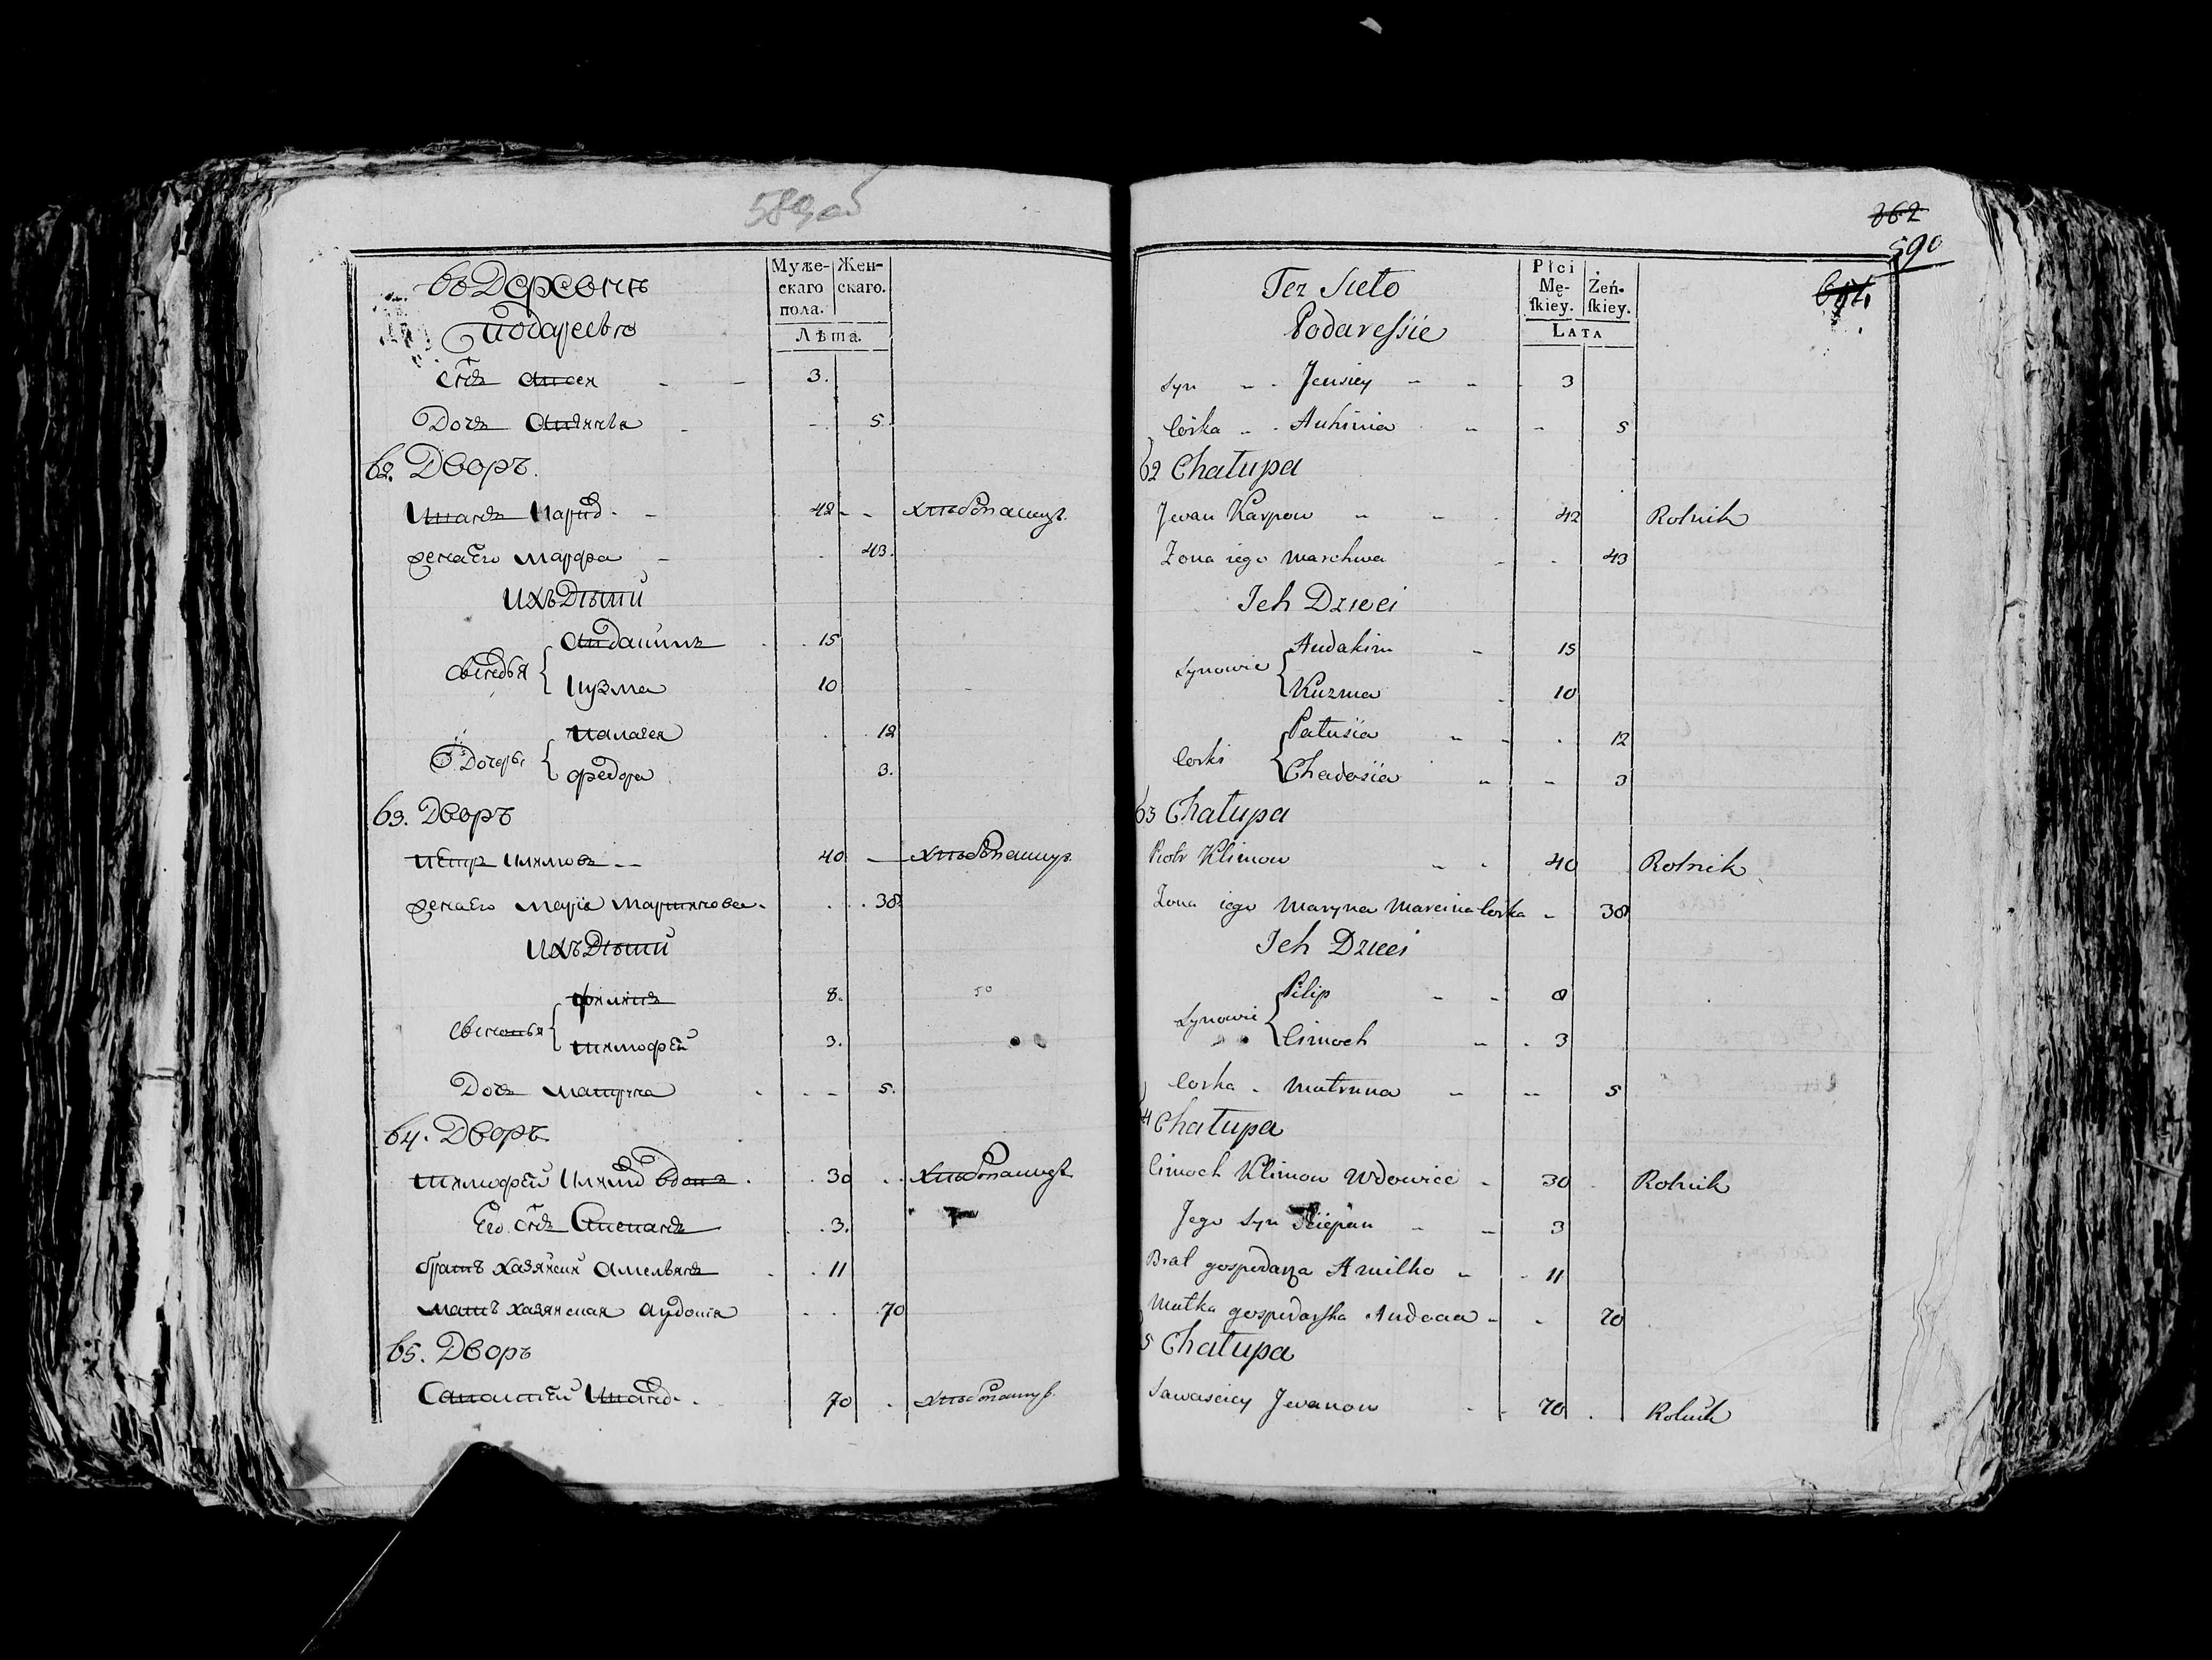 589 об
Муже-
скаго
пола.
Жен-
скаго.
Лѣта.
въ Деревнѣ
Подаресью
Снъ - - 3.
Дочь - - 5.
62. Дворъ.
Иванъ Карпов - - 42 - - хлѣбопашецъ.
жена Его Марфа - 43.
Ихъ Дѣти
Сыновья { Авдакимъ 15
Кузма 10
Дочери { Палагея 12
Федора 3.
63. Дворъ
Петръ Климовъ - - 40 - хлѣбопашецъ
жена Его Марія Мартинова. 38
Ихъ Дѣти
Сыновья { Филипъ 8.
Тимофей 3.
Дочь Матруна - - 5.
64. Дворъ
Тимофей Климов вдовъ. 30 хлѣбопашецъ
Его Снъ Степанъ 3.
братъ хазяйскій Амельянъ 11
мать хазяйская Авдотія 70
65. Дворъ
Савастей Иванов. 70 хлѣбопашецъ
362
590
Płci
Mę-
skiey.
Żeń-
skiey.
LATA
Tez Sieło
Podaressie
Syn - - Jeusiey - - 3
Corka - - Auhinia - - 5
62 Chałupa
Jwan Karpow - - 42 Rolnik
Zona iego Marchwa - 43
Ich Dzieci
Synowie { Audakim - 15
Kuzma 10
Corki { Pałusia - - 12
Chadosia - - 3
63 Chałupa
Piotr Klimow - - 40 Rolnik
Zona iego Maryna Marcina Corka - 38
Ich Dzieci
Synowie { Pilip - - 8
Cimoch - 3
Corka - Matruna - - 5
4 Chałupa
Cimoch Klimow Wdowiec - 30 Rolnik
Jego Syn Sciepan - - 3
Brat gospodarza Amilko - 11
Matka gospodarska - - 70
5 Chałupa
Sawasciey Jwanow - - 70 Rolnik